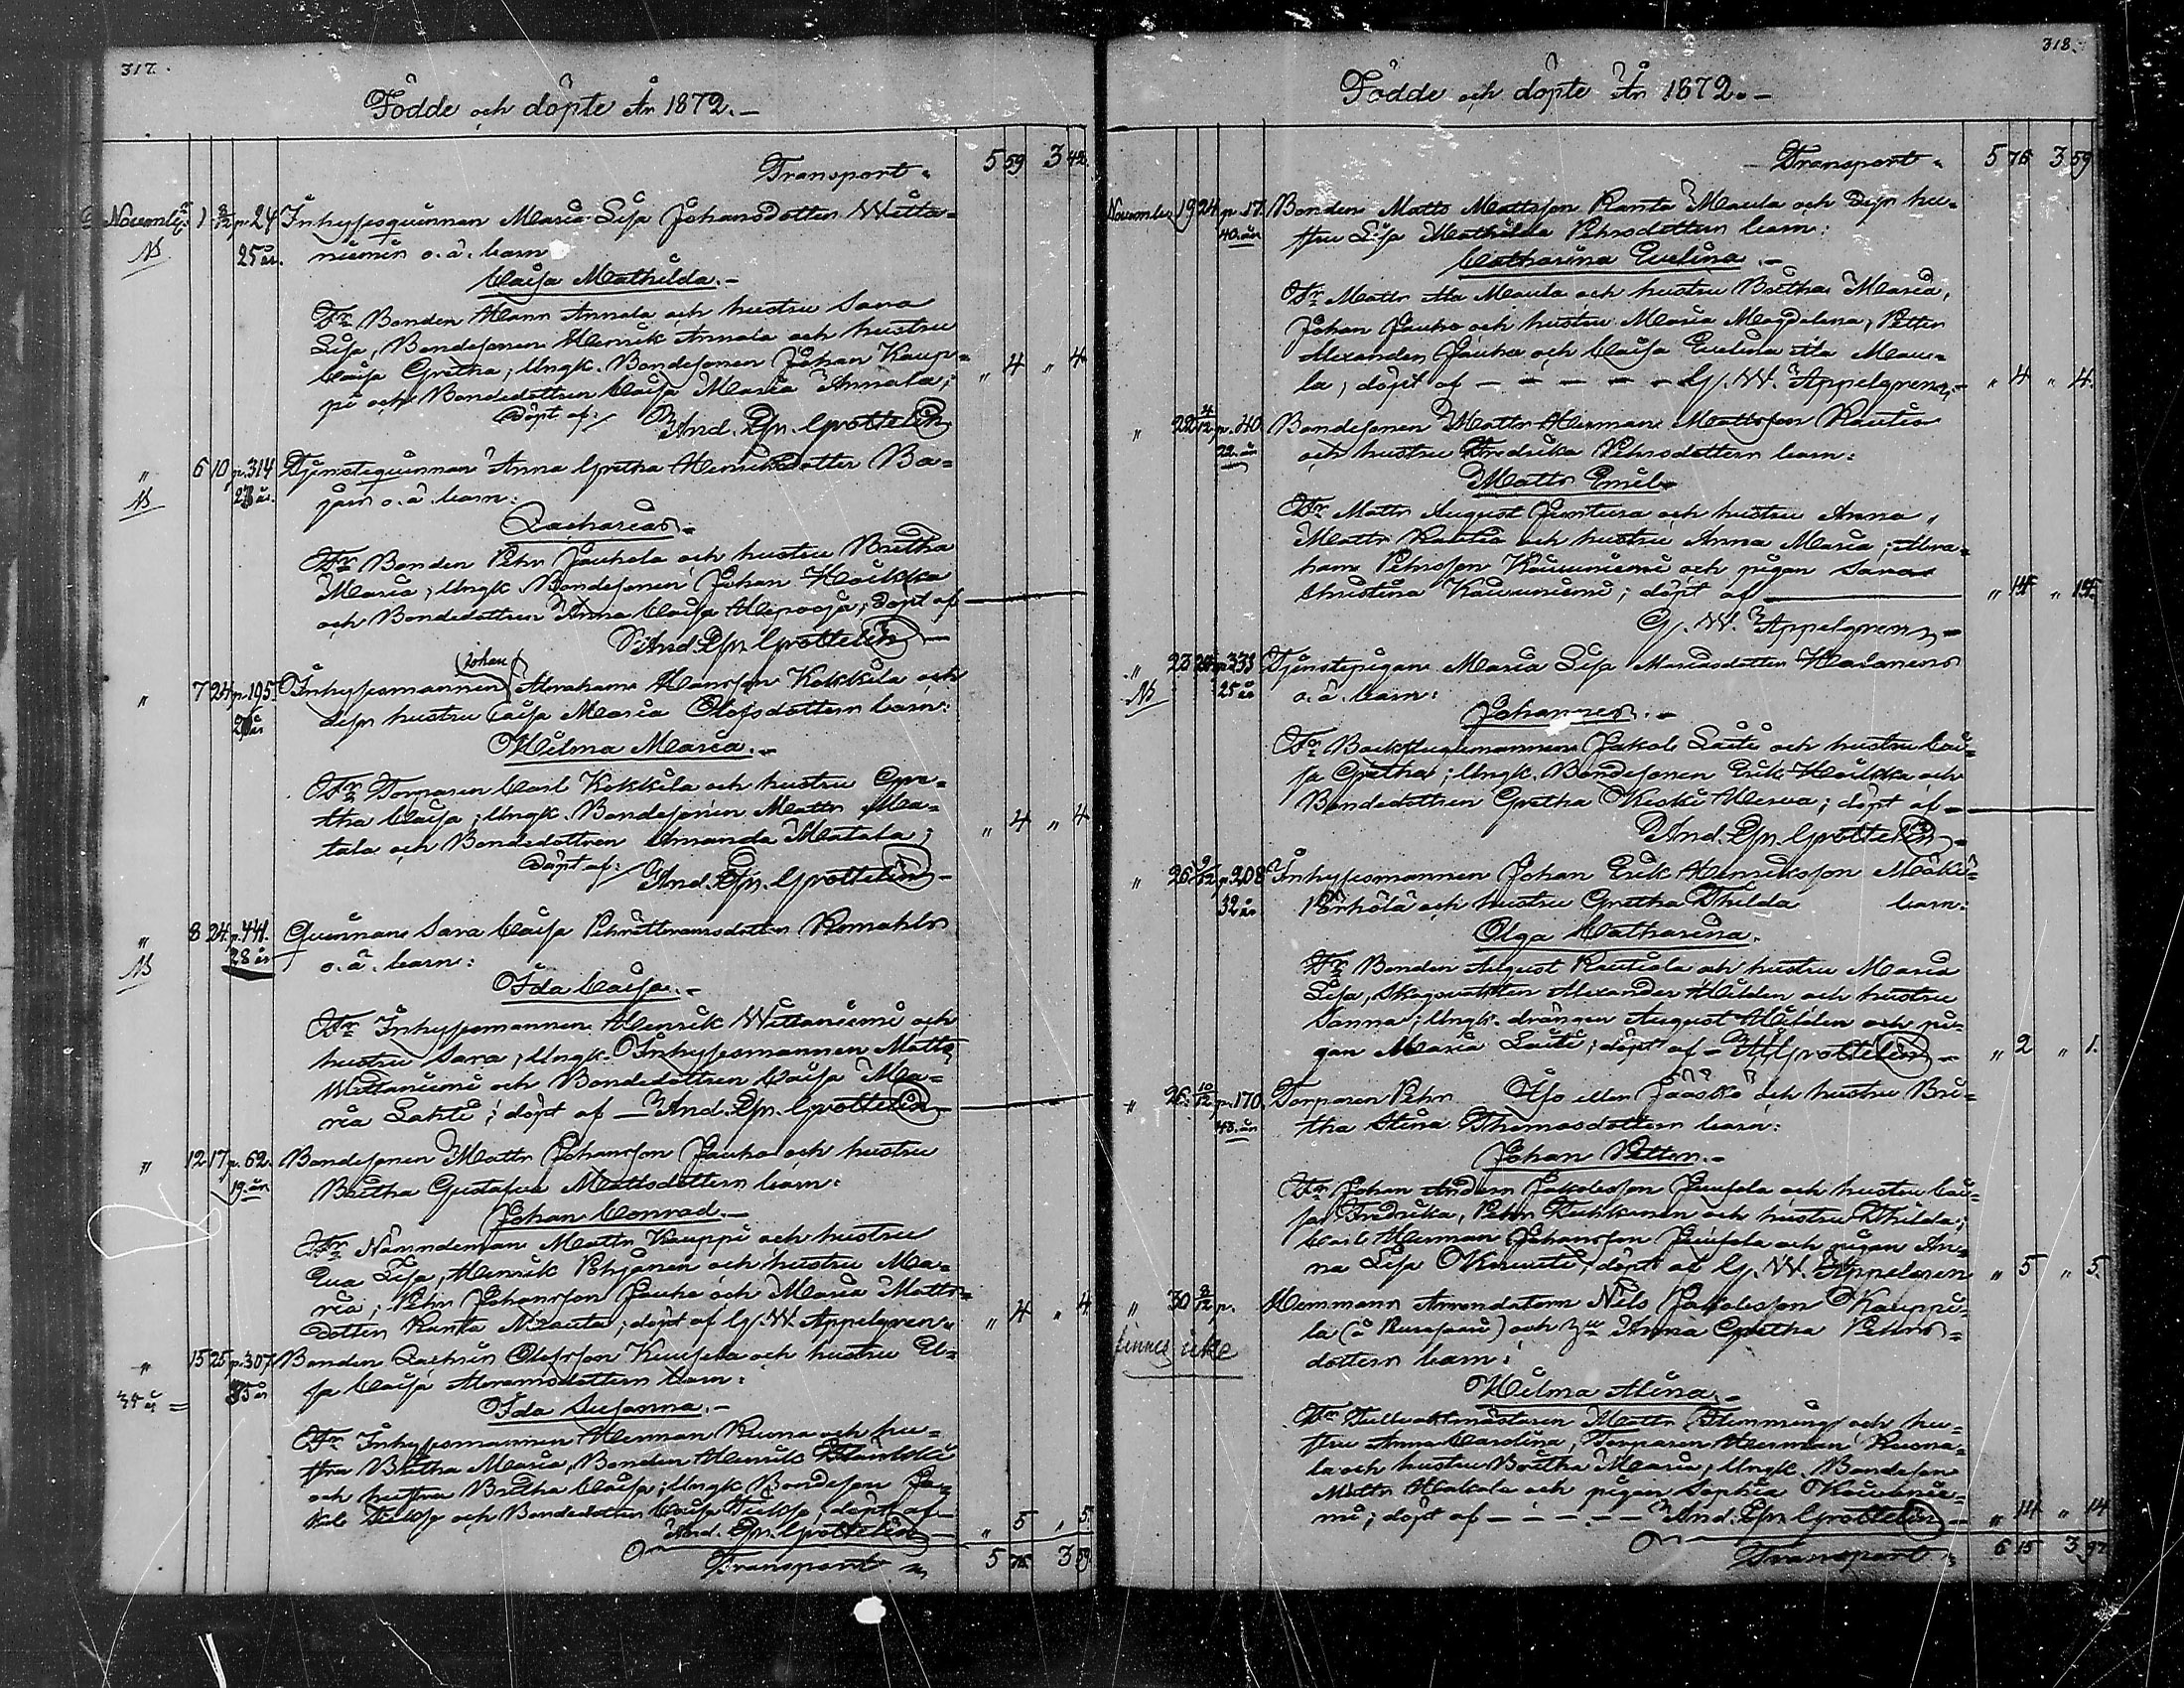 317.
Födde och döpte År 1872.-
Transport.. 5 59 3 42.
November 1 2/12 p. 24 Inhysesqvinnan Maria Lisa Johansdotter Wiita-
NB 25 år. niemis o.ä. barn
Caisa Mathilda.-
Fr Bonden Mann Annala och hustru Sara
Lisa, Bondesonen Henrik Annala och hustru
Caisa Gretha; Ungk. Bondesonen Johan Kaup-
pi och Bondedottren Caisa Maria Annala; „ 4 „ 4
Döpt af: And. Gottleben
„ 6 10 p. 314 Tjensteqvinnan Anna Gretha Henriksdotter Ba-
NB 23 år. o.ä. barn:
Zacharias.-
Fr Bonden Pehr Jauhola och hustru Britha
Maria; Ungk. Bondesonen Johan Hoikka
och Bondedottren Anna Caisa Alapooja; döpt af
And.
„ 7 24 p. 195. Inhysesmannen (Johan) Abraham Hansson Kokkila och
dess hustru Caisa Maria Olofsdotters barn:
Hilma Maria.-
Fr Torparen Carl Kokkila och hustru Gre-
tha Caisa; Ungk. Bondesonen Matts Ma-
tala och Bondedottren Amanda Matala; „ 4 „ 4
Döpt af: And.
„ 8 24. p. 441. Qvinnan Sara Caisa
NB 28 år o.ä. barn:
Ida Caisa.-
Fr Inhysesmannen Henrik Wiitaniemi och
hustru Sara; Ungk. Inhysesmannen Matts
Wiitaniemi och Bondedottren Caisa Ma-
ria Lahti; döpt af — And.
„ 12 17 p. 62. Bondesonen Matts Johansson Jauho och hustru
19. år Britha Gustafva Mattsdotters barn:
Johan Conrad.-
Fr Nämndeman Matts Kauppi och hustru
Eva Lisa, Henrik Pohjanen och hustru Ma-
ria; Pehr Johansson Jauho och Maria Matts-
dotter Ranta ; döpt af G. W. Appelgren. „ 4 „ 4
„ 15 25 p. 307 Bonden Zachris Olofsson och hustru El-
35 år = 35 år sa Caisa Abramsdotters barn:
Ida Susanna.-
Fr Inhysesmannen Herman Ruona och hu-
stru Britha Maria, Bonden Henrik
och hustru Britha Caisa; Ungk Bondeson Ja-
kob och Bondedottren Caisa ; döpt af — „ 5 „ 5.
And.
Transport 5 76. 3 59
318.
Födde och döpte År 1872.-
Transport.. 5 76 3 59
November 19 24 p. 17. Bonden Matts Mattsson Ranta Maula och dess hu-
40. år stru Lisa Mathilda Pehrsdotters barn:
Catharina Evelina.-
Fr Matts Ala Maula och hustru Britha Maria,
Johan Jauho och hustru Maria Magdalena, Petter
Alexander Jauho och Caisa Evelina Ala Mau-
la; döpt af — — — — — G. W. Appelgren.- „ 4 „ 4.
„ 22 4/12 p. 40 Bondesonen Matts Herman Mattsson Rautio
22. år och hustru Fredrika Pehrsdotters barn:
Matts Emil.
Fr Matts August Juntura och hustru Anna,
Matts Rautio och hustru Anna Maria; Abra-
ham Pehrsson Kauniemi och pigan Sara
Christina Kauniemi; döpt af „ 14 „ 14.
G. W. Appelgren.-
„ 23 24 p. 333 Tjenstepigan Maria Lisa
NB 25 år o.ä. barn:
Johannes.-
Fr Backstugumannen Jakob Laiti och hustru Cai-
sa Gretha; Ungk. Bondesonen Erik Hoikka och
Bondedottren Gretha Keski Herva; döpt af —
And.
„ 26 9/12 p. 208 Inhysesmannen Johan Erik Henriksson Mäki-
32 år Pörhölä och hustru Gretha Thilda barn:
Olga Catharina.
Fr Bonden August Rautiola och hustru Maria
Lisa, Skogvaktaren Alexander Hilden och hustru
Sanna; Ungk. drängen August Hilden och pi-
gan Maria Laiti; döpt af — „ 2 „ 1.
„ 26. 10/12 p. 170. Torparen Pehr Iso eller Jääskö och hustru Bri-
48. år tha Stina Thomasdotters barn:
Johan Petter.-
Fr Johan Anders Jakobsson Juujola och hustru Cai-
sa Fredrika, Pehr Tuhkanen och hustru Thilda;
Carl Herman Johansson Juujola och pigan An-
na Lisa ; döpt af G. W. Appelgren „ 5 „ 5.
„ 30 9/12 p. Hemmans Arrendatorn Nils Jakobsson Kauppi-
finnes icke la (å ) och Anna Gretha Pehrs-
dotters barn:
Hilma Alina.-
Fr Tullvaktmästaren Matts Flemming och hu-
stru Anna Carolina, Torparen Herman Ruona-
la och hustru Britha Maria; Ungk. Bondeson
Matts Hakala och pigan Sophia Kauniemi-
mi; döpt af — — — — And. „ 14 „ 14
Transport.. 6 15 3 97